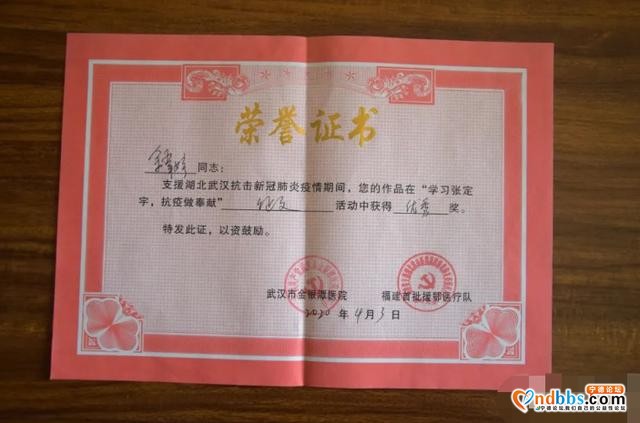 荣誉证书
同志:
支援湖北武汉抗击新冠肺炎疫情期间,您的作品在“学习张定
宇,抗疫做奉献” 征文 活动中获得 优秀 奖。
特发此证,以资鼓励。
武汉市金银潭医院 福建首批援鄂医疗队
2020 年 4 月 3 日
ndbbs.com
宁德论坛,我们自己的公益性论坛